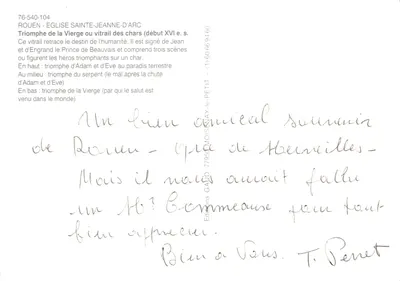 76-540-104
ROUEN - EGLISE SAINTE-JEANNE-D'ARC
Triomphe de la Vierge ou vitrail des chars (début XVI e. s.
Ce vitrail retrace le destin de l'humanité. Il est signé de Jean
et d'Engrand le Prince de Beauvais et comporte trois scènes
ou figurent les héros triomphants sur un char.
En haut : triomphe d'Adam et d'Eve au paradis terrestre
Au milieu : triomphe du serpent (le mal après la chute
d'Adam et d'Eve)
En bas : triomphe de la Vierge (par qui le salut est
venu dans le monde)
Un bien amical souvenir
de Rouen - que de Merveilles -
Mais il nous aurait fallu
un Mr Commeaux pour tout
bien apprécier.
Bien à Vous. T. Perret